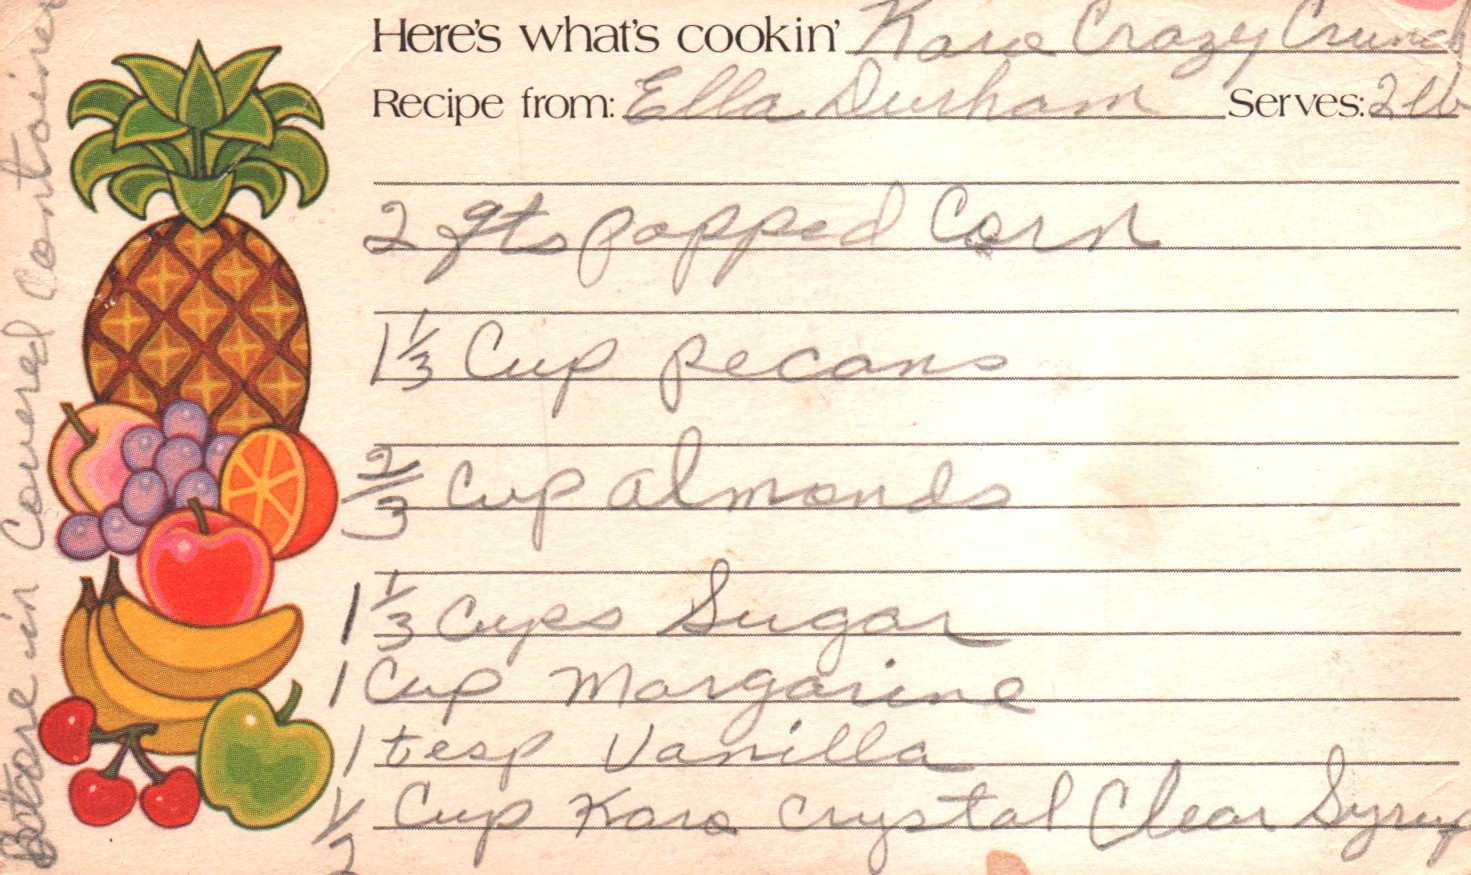 Here's what's cookin' Karo Crazy Crunch
Recipe from: Ella Durham Serves: 2 lb
2 qts popped Corn
1 1/3 Cup pecans
2/3 Cup almonds
1 1/3 Cups Sugar
1 Cup Margarine
1 tesp Vanilla
1/2 Cup Karo Crystal Clear Syrup
Store in Covered Container